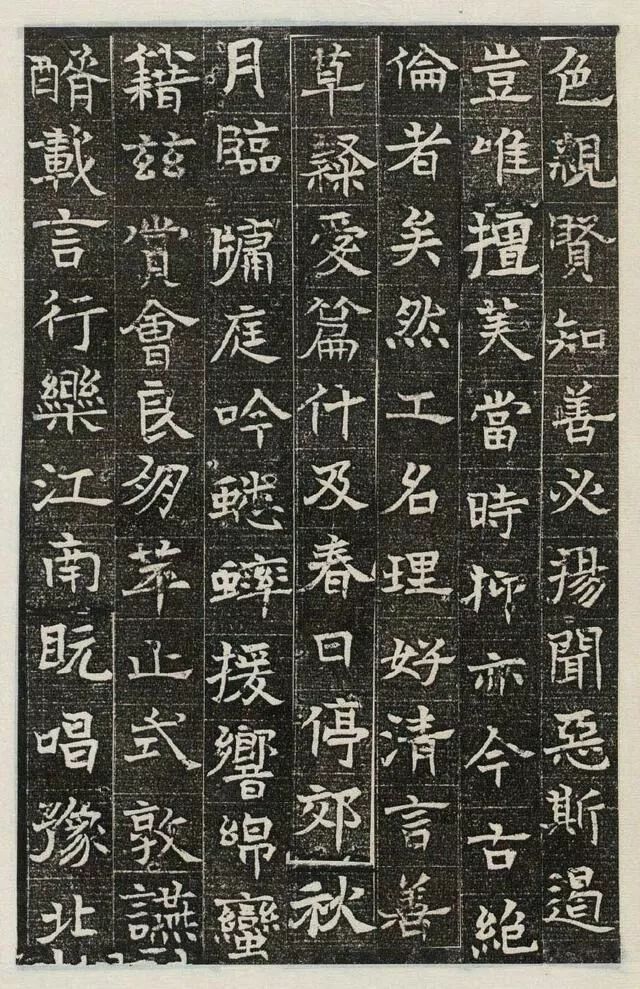 色親賢知善必揚聞惡斯遏
豈唯擅美當時抑亦今古絶
倫者矣然工名理好清言善
草隸愛篇什及春日停郊秋
月臨牖庭吟蟋蟀援響綿蠻
籍茲賞會良朋萃止式敦讌
醑載言行樂江南既唱豫北